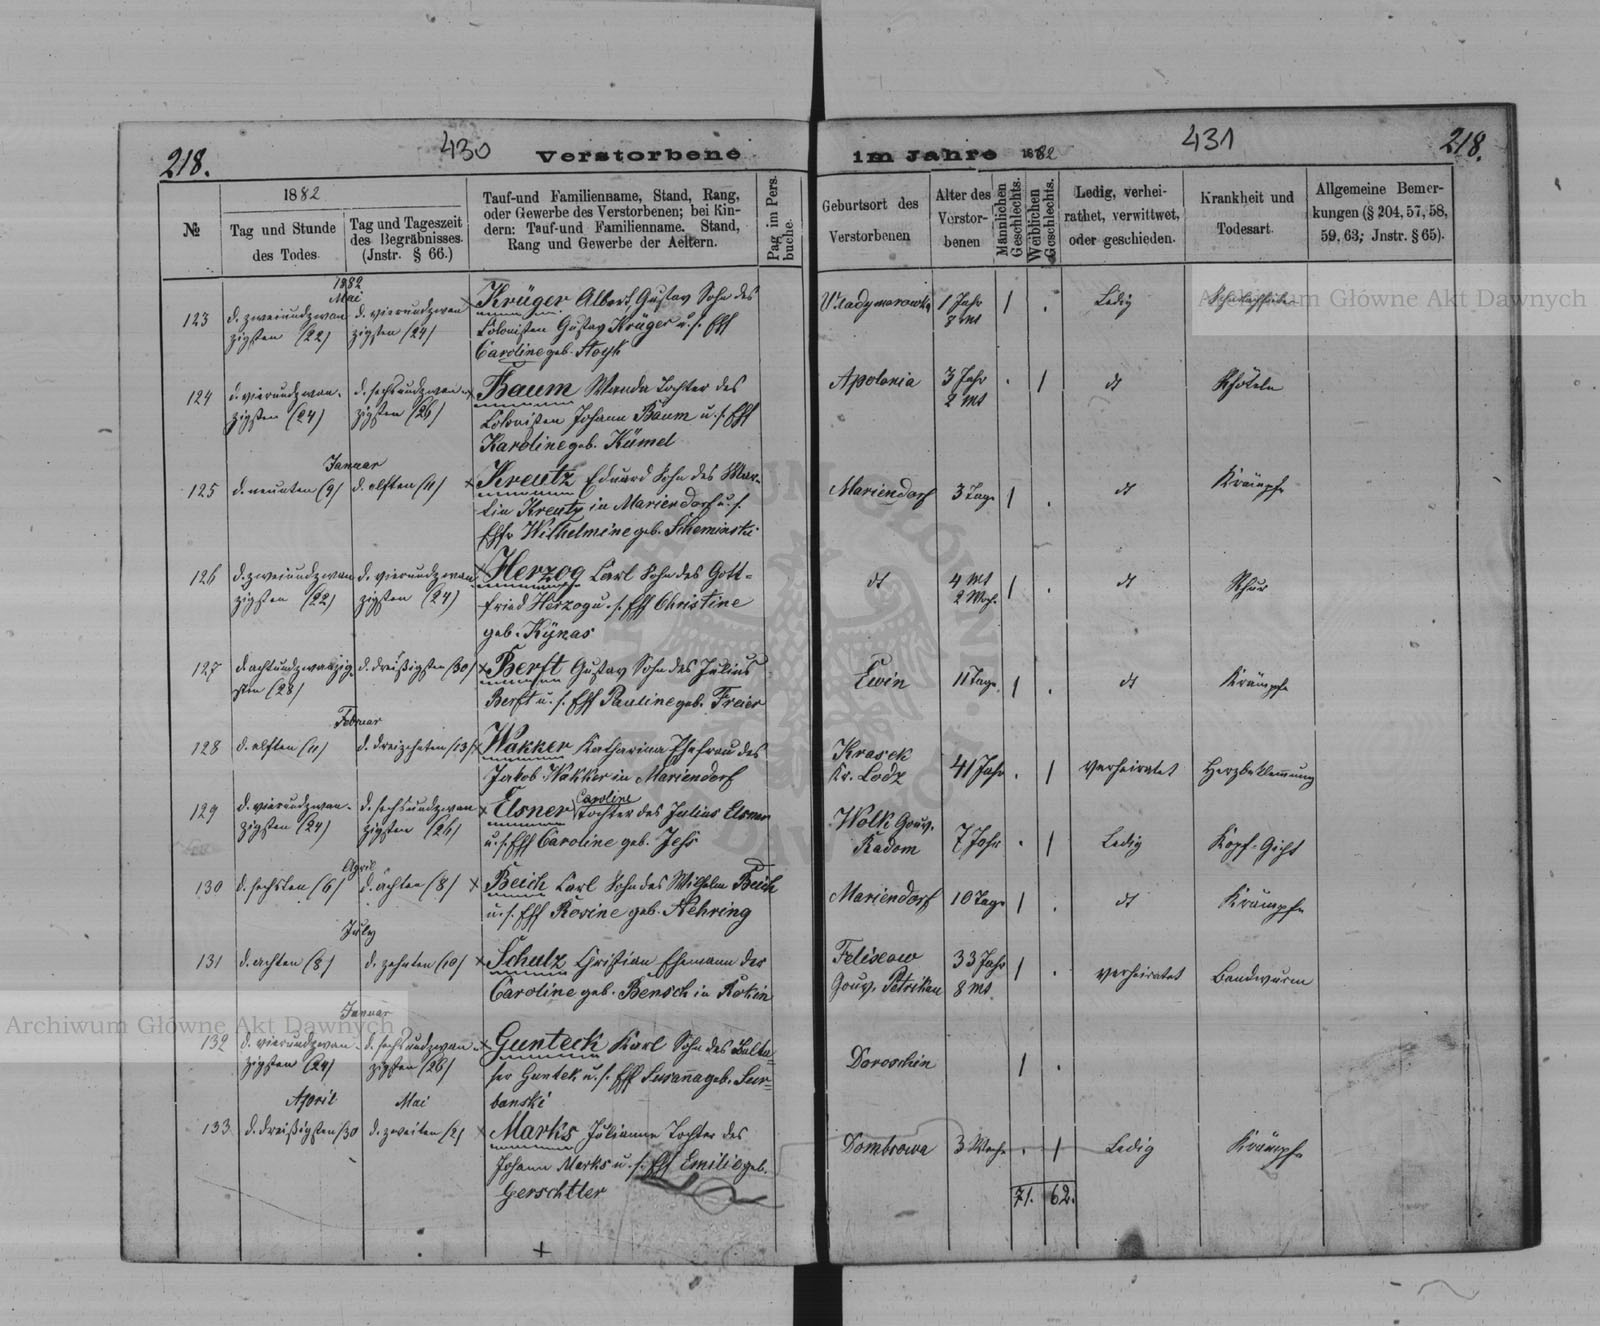 218.
430
Verstorbene
im Jahre 1882
431
218.
№
1882
Tag und Stunde
des Todes.
Tag und Tageszeit
des Begräbnisses.
(Jnstr. § 66.)
Tauf-und Familienname, Stand, Rang,
oder Gewerbe des Verstorbenen; bei Kin-
dern: Tauf-und Familienname. Stand,
Rang und Gewerbe der Aeltern.
Pag im Pers.
buche.
Geburtsort des
Verstorbenen
Alter des
Verstor-
benen
Männlichen
Geschlechts.
Weiblichen
Geschlechts.
Ledig, verhei-
rathet, verwittwet,
oder geschieden.
Krankheit und
Todesart.
Allgemeine Bemer-
kungen (§ 204, 57, 58,
59, 63; Jnstr. § 65).
1882
Mai
123
d. zweiundzwan
zigsten (22)
d. vierundzwan
zigsten (24)
Krüger Albert Gustav Sohn des
Colonisten Gustav Krüger u. s. Eff
Caroline geb.
1 Jahr
8 Mt
1
.
Ledig
124
d. vierundzwan-
zigsten (24)
d. sechsundzwan-
zigsten (26)
Baum Wanda Tochter des
Colonisten Johann Baum u. s. Eff
Karoline geb. Kümel
Apolonia
3 Jahr
2 Mt
.
1
dt
Rötheln
Januar
125
d. neunten (9)
d. elften (11)
Kreutz Eduard Sohn des Mar-
tin Kreutz in Mariendorf u. s.
Ehfr Wilhelmine geb. Scheminski
Mariendorf
3 Tage
1
.
dt
Krämpfe
126
d. zweiundzwan
zigsten (22)
d. vierundzwan-
zigsten (24)
Herzog Carl Sohn des Gott-
fried Herzog u. s. Eff Christine
geb. Kÿnas
dt
4 Mt
2 Woch.
1
.
dt
127
d. achtundzwanzig-
sten (28)
d. dreißigsten (30)
Berft Gustav Sohn des Julius
Berft u. s. Eff Pauline geb. Freier
Ewin
11 Tage
1
.
dt
Krämpfe
Februar
128
d. elften (11)
d. dreizehnten (13)
Wakker Katharina Ehefrau des
Jakob Wakker in Mariendorf
Krasek
Kr. Lodz
41 Jahr
.
1
verheiratet
Herzbeklemmung
129
d. vierundzwan-
zigsten (24)
d. sechsundzwan
zigsten (26)
Caroline
Elsner Tochter des Julius Elsner
u. s. Eff Caroline geb. Jess
Wolk Gouv.
Radom
7 Jahr
.
1
Ledig
Kopf-Gicht
April
130
d. sechsten (6)
d. achten (8)
Beich Carl Sohn des Wilhelm Beich
u. s. Eff Rosine geb. Nehring
Mariendorf
10 Tage
1
.
dt
Krämpfe
July
131
d. achten (8)
d. zehnten (10)
Schulz Christian Ehemann der
Caroline geb. Bensch in Rokin
Felixow
Gouv. Petrikau
33 Jahr
8 Mt
1
.
verheiratet
Bandwurm
Januar
132
d. vierundzwan-
zigsten (24)
d. sechsundzwan-
zigsten (26)
Gunteck Karl Sohn des Balta-
ser Guntek u. s. Eff Susanna geb. Sur-
banski
Doroschin
1
.
April
Mai
133
d. dreißigsten (30
d. zweiten (2)
Marks Julianna Tochter des
Johann Marks u. s. Eff Emilie geb.
Gerschtler
Dombrowa
3 Woche
.
1
Ledig
Krämpfe
71. 62.
Archiwum Główne Akt Dawnych
Archiwum Główne Akt Dawnych